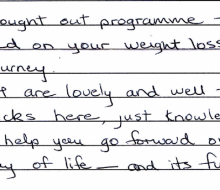 ought out programme -
d on your weight loss
urney.
are lovely and well -
cks here, just knowle
help you go forward o
y of life — and its fu